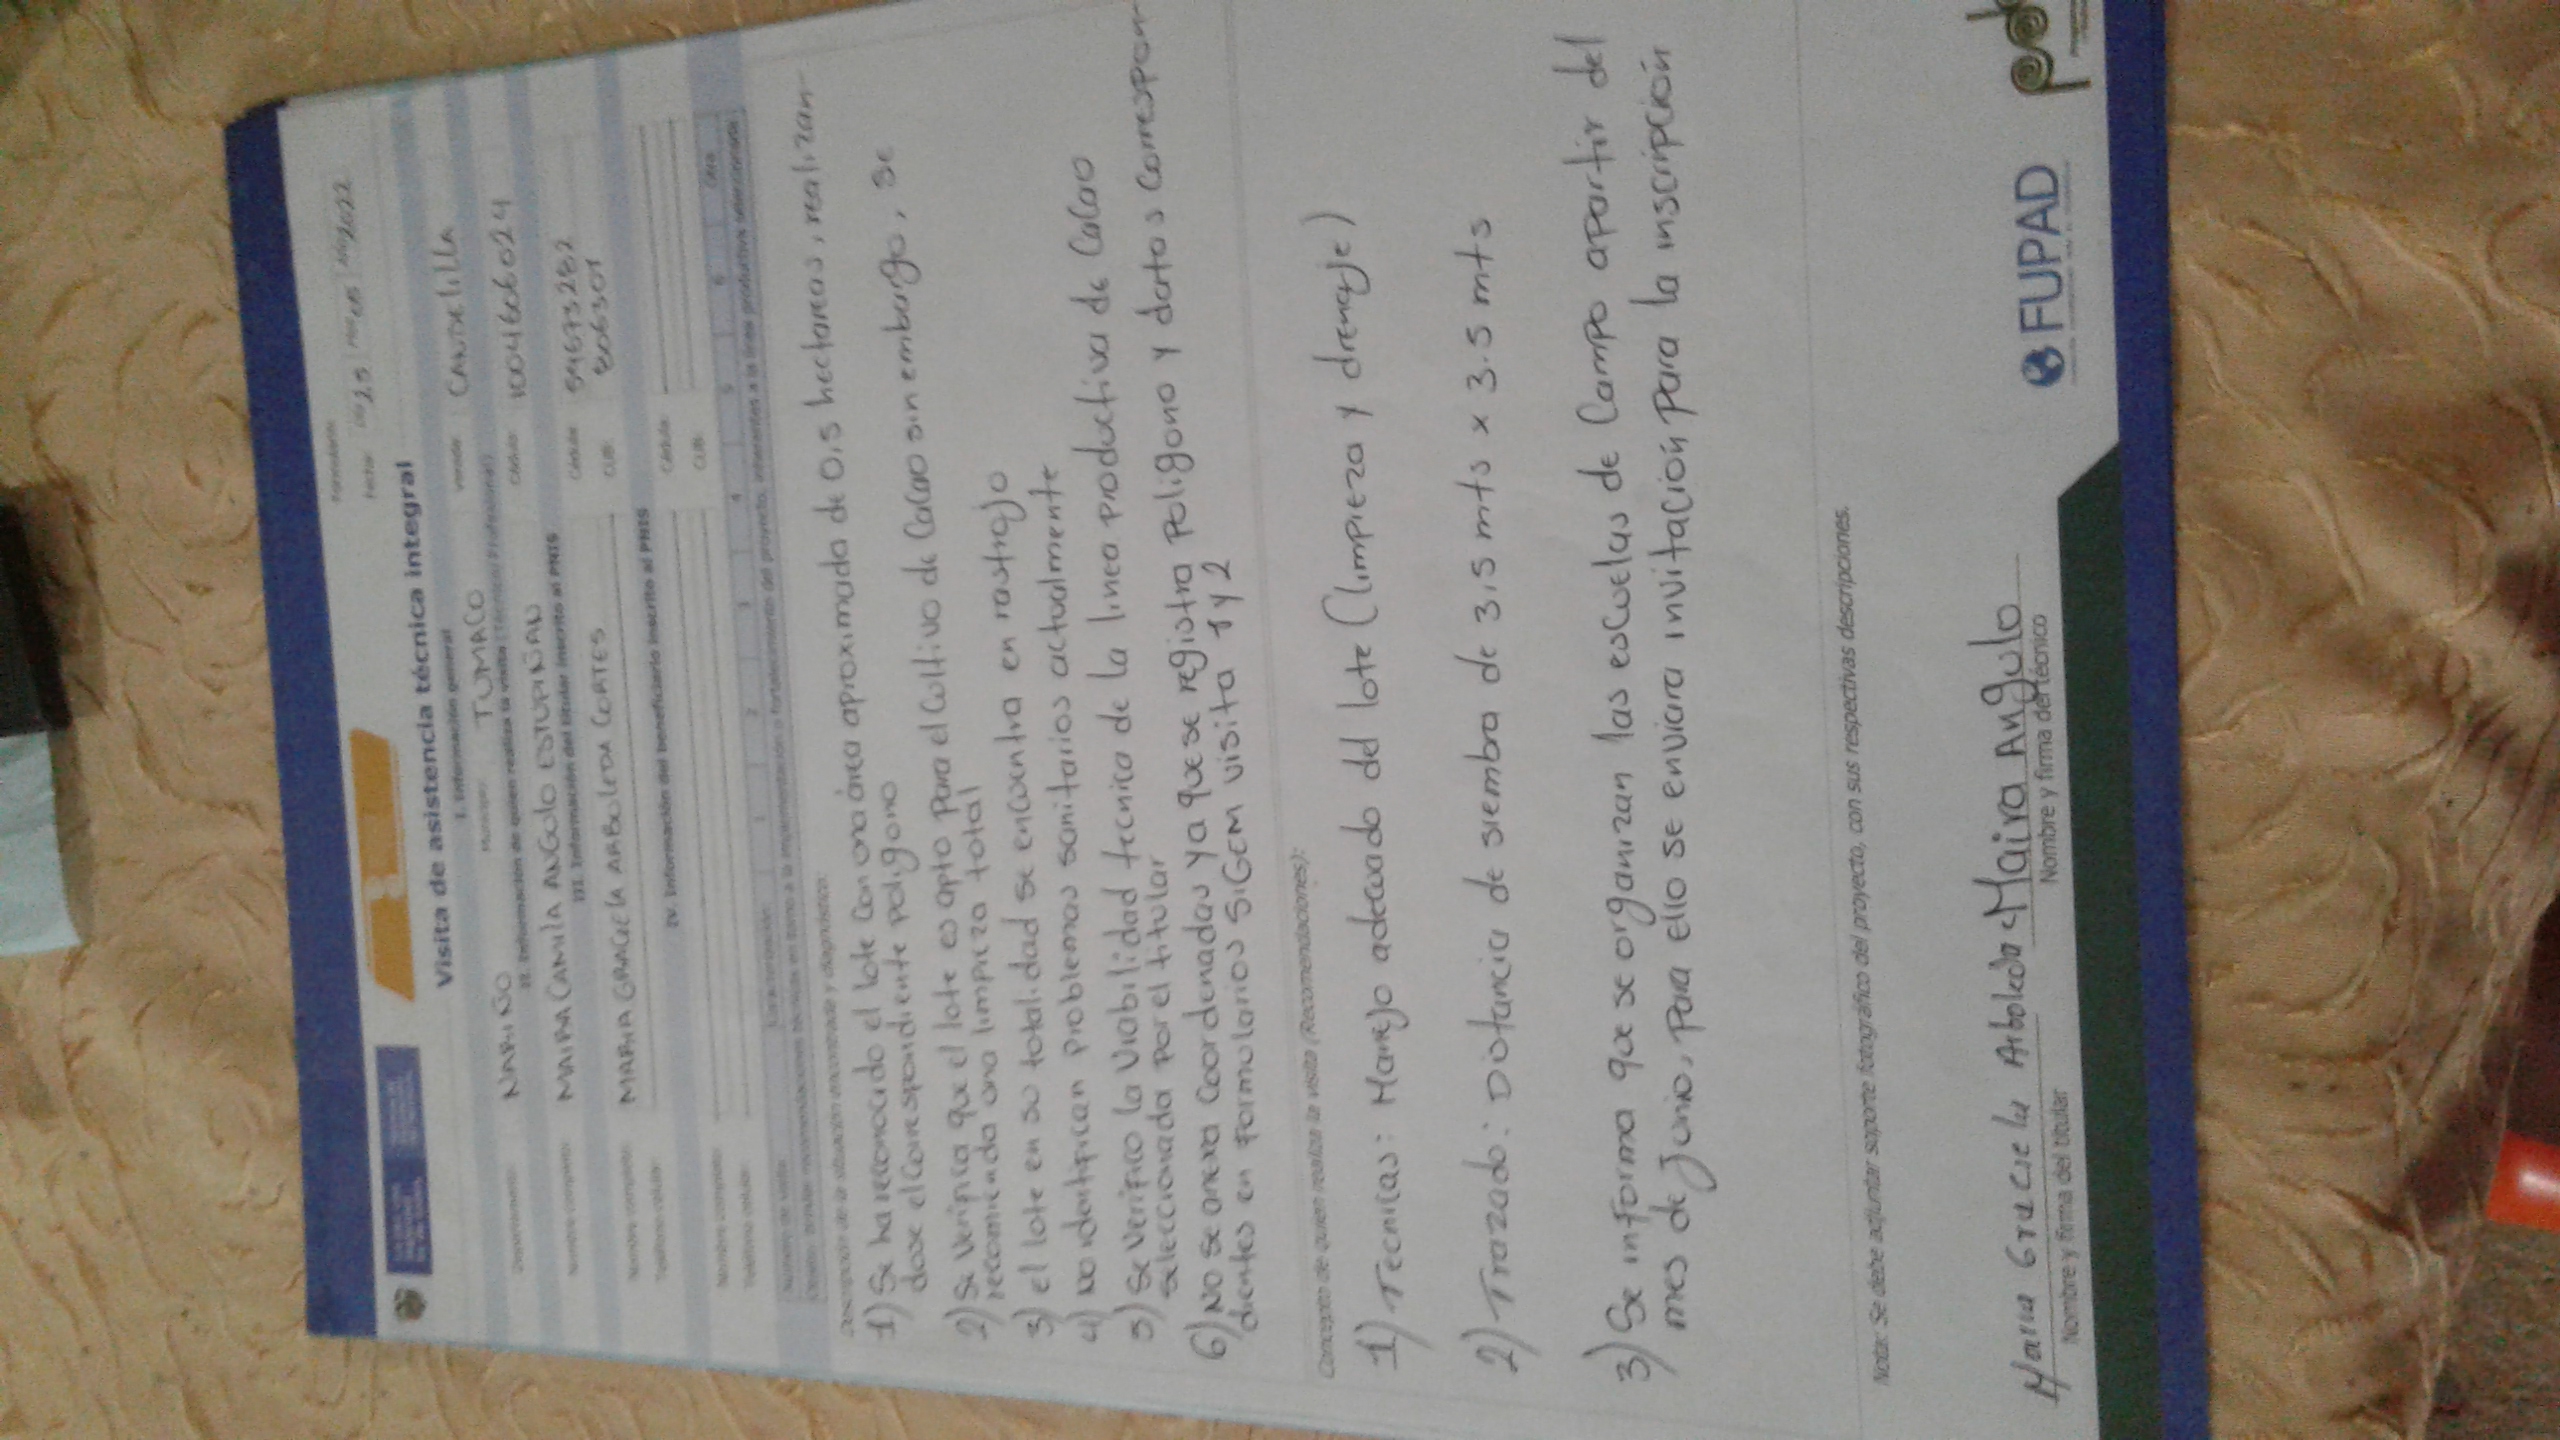 Formulario
Fecha: Día 25 Mes 05 Año 2022
Visita de asistencia técnica integral
I. Información general
Departamento: NARIÑO Municipio: TUMACO Vereda: CANDELILLA
II. Información de quien realiza la visita (Técnico/Profesional)
Nombre completo: MAIRA CAMILA ANGULO ESTUPIÑAN Cédula: 1004606024
III. Información del titular inscrito al PNIS
Nombre completo: MARIA GRACIELA ARBOLEDA CORTES Cédula: 59673282
Teléfono celular: CUB: 806301
IV. Información del beneficiario inscrito al PNIS
Nombre completo: Cédula:
Teléfono celular: CUB:
Número de visita: Caracterización 1 2 3 4 5 6 Otra
Descripción de la situación encontrada y diagnóstico:
1) Se ha reconocido el lote con una área aproximada de 0,5 hectareas, realizan-
dose el correspondiente poligono
2) Se verifica que el lote es apto para el Cultivo de Cacao sin embargo, se
recomienda una limpieza total
3) el lote en su totalidad se encuentra en rastrojo
4) No identifican problemas sanitarios actualmente
5) Se verifico la Viabilidad tecnica de la linea productiva de Cacao
seleccionada por el titular
6) No se anexa coordenadas ya que se registra poligono y datos correspon-
dientes en formularios SIGEM visita 1 y 2
Concepto de quien realiza la visita (Recomendaciones):
1) Tecnicas: Manejo adecuado del lote (limpieza y drenaje)
2) Trazado: Distancia de siembra de 3,5 mts x 3.5 mts
3) Se informa que se organizan las escuelas de Campo apartir del
mes de Junio, para ello se enviara invitación para la inscripción
Nota: Se debe adjuntar soporte fotográfico del proyecto, con sus respectivas descripciones.
Maria Graciela Arboleda C Maira Angulo
Nombre y firma del titular Nombre y firma del técnico
FUPAD